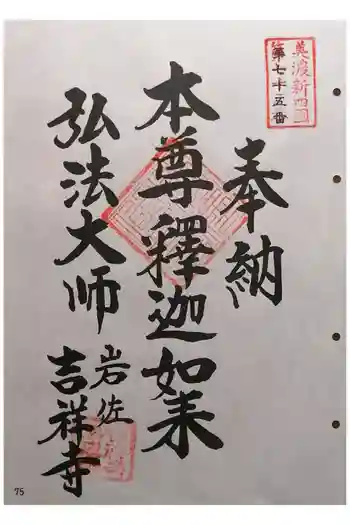 美濃新四国
第七十五番
奉納
本尊釋迦如来
弘法大师
岩佐
吉祥寺
75